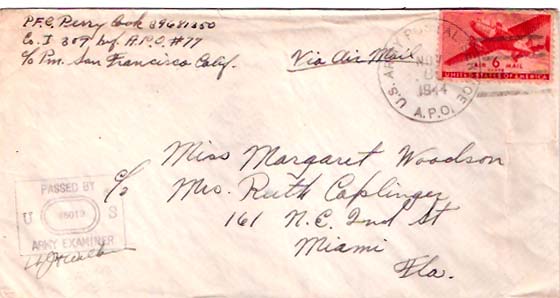 P.F.C. Perry Cook 39681350
Co. I 307 Inf. A.P.O. #77
c/o Pm. San Francisco Calif.
Via Air Mail
U.S. ARMY POSTAL SERVICE
NOV
1944
A.P.O.
6
AIR MAIL
UNITED STATES OF AMERICA
Miss Margaret Woodson
c/o Mrs. Ruth Caplinger
161 N.E. 2nd St
Miami
Fla.
PASSED BY
U S
ARMY EXAMINER